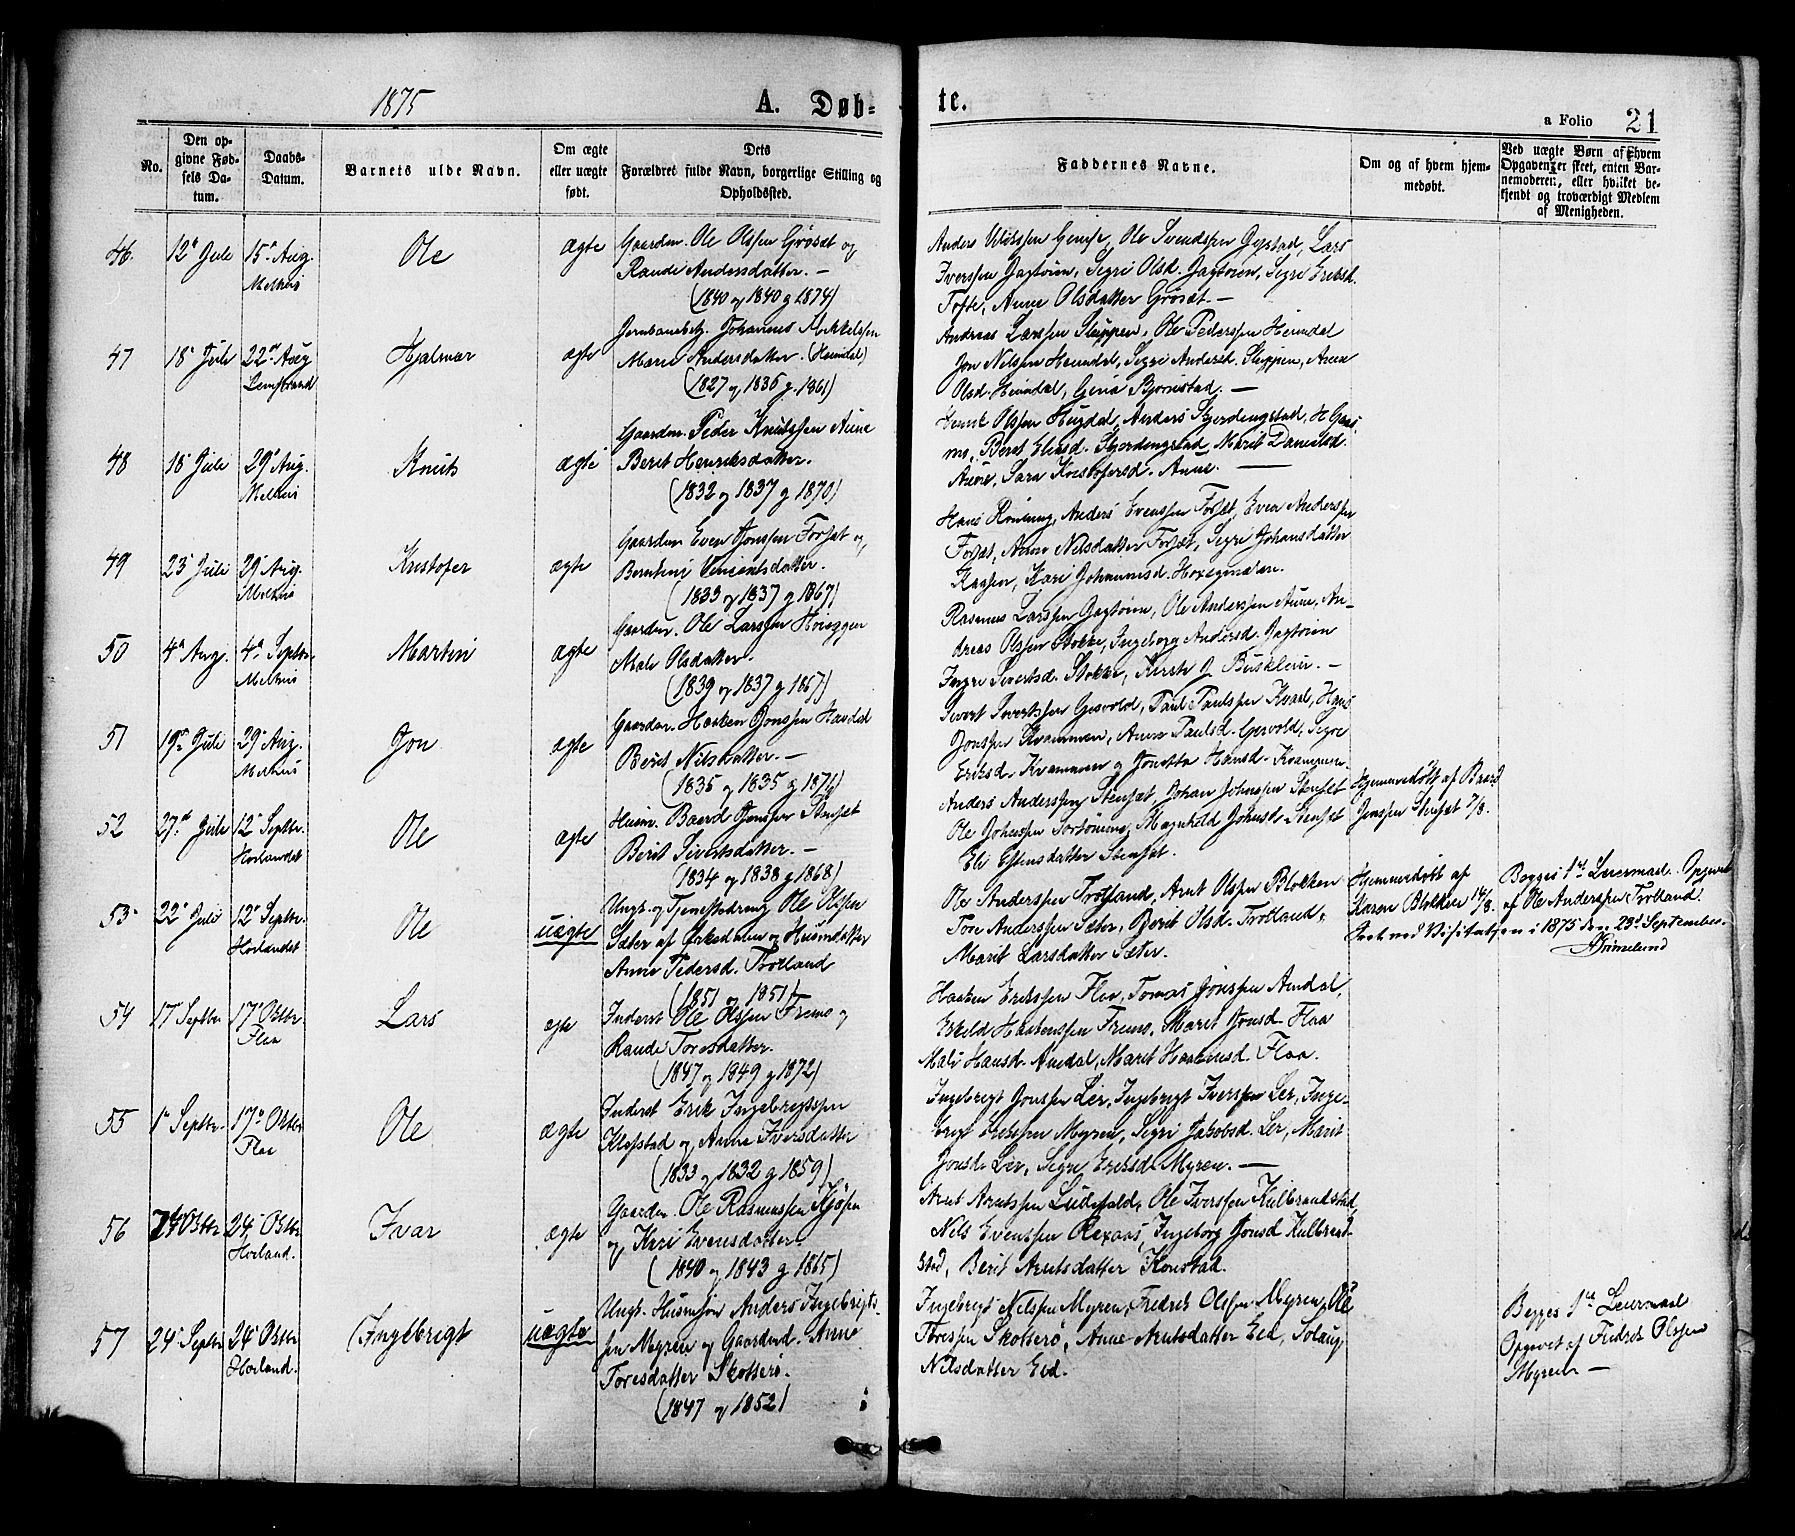 1875
A. Døb-
te.
a Folio 21
No.
Den op-
givne Fød-
sels Da-
tum.
Daabs-
Datum.
Barnets fulde Navn.
Om ægte
eller uægte
født.
Dets
Forældres fulde Navn, borgerlige Stilling og
Opholdssted.
Faddernes Navne.
Om og af hvem hjem-
medøbt.
Ved uægte Børn af hvem
Opgaven er skeet, enten Bar-
nemoderen, eller hvilket be-
kjendt og troværdigt Medlem
af Menigheden.
46 12 Juli 15 Aug. Melhus
Ole
ægte
Gaardm. Ole Olssen Grøsæt og
Rande Andersdatter. —
(1840 og 1840 g 1874)
Ole Svendssen Gystad, Lars
Iverssen Jagtøien, Sigri Olsd. Jagtøien, Sigri Eriksd.
Tofte, Anne Olsdatter Grøsæt. —
47 18 Juli 22 Aug
Hjalmar
ægte
Johannes Mikkelsen
Marie Andersdatter. (Heimdal)
(1827 og 1836 g. 1861)
Andreas Larssen Sluppen, Ole Pederssen Heimdal
Jon Nilssen Heimdal, Sigri Andersd. Sluppen, Anne
Olsd. Heimdal, Bjørnstad. —
48 18 Juli 29 Aug. Melhus
Knut
ægte
Gaardm. Peder Knutssen Aune
Berit Henriksdatter.
(1832 og 1837 g 1870)
Olssen Hugdal, Anders Skjerdingstad,
Beret Skjerdingstad, Marit
Aune, Sara Kristofersd. Aune. —
49 23 Juli 29 Aug. Melhus
Kristofer
ægte
Gaardm. Even Jonssen Forsæt og
(1833 og 1837 g 1867)
Hans Rønning, Anders Evenssen Forsæt, Even Anderssen
Forsæt, Anne Nilsdatter Forsæt, Sigri Johansdatter
Kari Johannesd.
50 4 Aug. 4 Septbr. Melhus
Martin
ægte
Gaardm. Ole Larssen
Olsdatter.
(1839 og 1837 g 1867)
Rasmus Larssen Jagtøien, Ole Anderssen Aune, An-
dreas Olssen Stokke, Ingeborg Andersd. Jagtøien
Sivertsd. Stokke, Kirsti
51 19 Juli 29 Aug. Melhus
Jon
ægte
Gaardm. Haaken Jonssen
Berit Nilsdatter. —
(1835 og 1835 g 1871)
Sivert Sivertssen Gisvold, Paul Paulssen Kvaal, Hans
Jonssen Krammen, Anne Paulsd. Gisvold,
Eriksd. Krammen og Hansd. Krammen
52 27 Juli 12 Septbr. Horlandet
Ole
ægte
Husm. Baard Jonssen Stensæt
Berit Sivertsdatter. —
(1834 og 1838 g 1868)
Anders Anderssen Stensæt, Johan Stensæt
Stensæt
Eli Estensdatter Stensæt.
Hjemmedøbt af Baard
Jonssen Stensæt 7/8.
53 22 Juli 12 Septbr. Horlandet
Ole
uægte
Ungk. og Ole Olssen
Sæter af og Husmdatter
Anne Pedersd. Trotland
(1851 og 1851)
Ole Anderssen Trotland, Arnt Olssen Blokken
Tore Anderssen Sæter, Berit Olsd. Trotland,
Marit Larsdatter Sæter.
Hjemmedøbt af
Karen Blokken 14/8.
Begges 1ste Leiermaal. Opgivet
af Ole Anderssen Trotland.
Seet ved Visitatsen i 1875 den 23de September
AGrimelund
54 17 Septbr 17 Oktbr. Flaa
Lars
ægte
Inderst Ole Olssen Fremo og
Rande Toresdatter.
(1847 og 1849 g 1872)
Haaken Erikssen Flaa, Tomas Jonssen
Eskild Haakenssen Fremo, Marit Jonsd. Flaa
Mali Hansd. Marit Flaa.
55 1 Septbr. 17 Oktbr. Flaa
Ole
ægte
Inderst Erik Ingebrigtssen
Klefstad og Anne Iversdatter
(1833 og 1832 g 1859)
Ingebrigt Jonssen Ler, Ingebrigt Iverssen Ler, Inge-
brigt Erikssen Myren, Sigri Jakobsd. Ler, Marit
Jonsd. Ler, Eriksd. Myren. —
56 24 Oktbr. Horland.
Ivar
ægte
Gaardm. Ole Rasmussen
og Kari Evensdatter
(1840 og 1843 g 1865)
Arnt Arntssen Ole Iverssen Kulbrandstad,
Nils Evenssen Ingeborg Jonsd. Kulbrand-
stad, Berit Arntsdatter Konstad.
57 24 Septbr 24 Oktbr Horland.
Ingebrigt
uægte
Ungk. Anders Ingebrigts-
sen Myren og Gaardmd. Anne
Toresdatter Skotterø.
(1847 og 1852)
Ingebrigt Nilssen Myren, Fredrik Olssen Myren, Ole
Toressen Skotterø, Anne Arntsdatter Eid, Solaug
Nilsdatter Eid.
Begges 1ste Leiermaal
Opgivet af Fredrik Olssen
Myren —